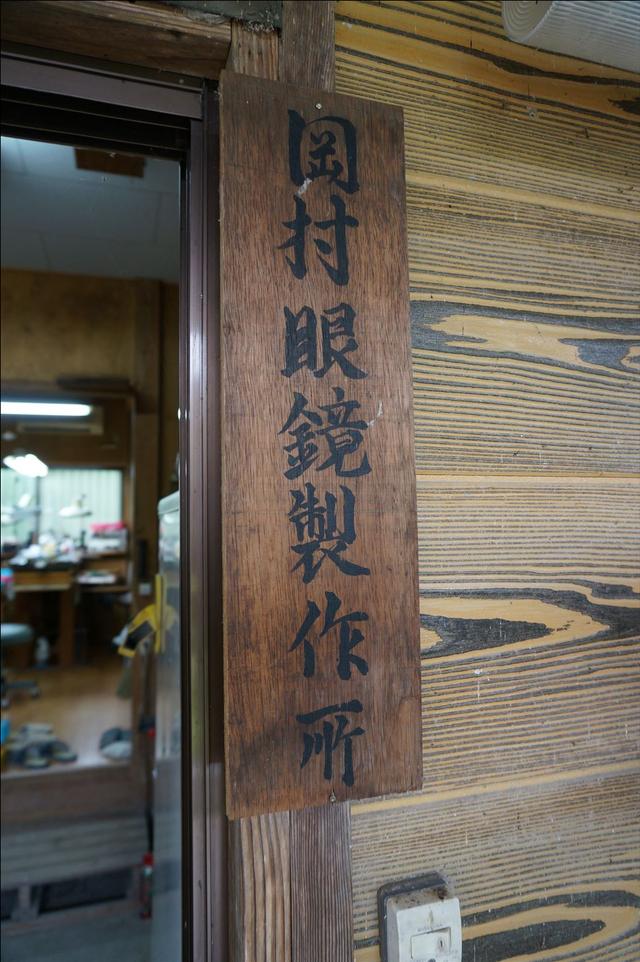 岡村眼鏡製作所